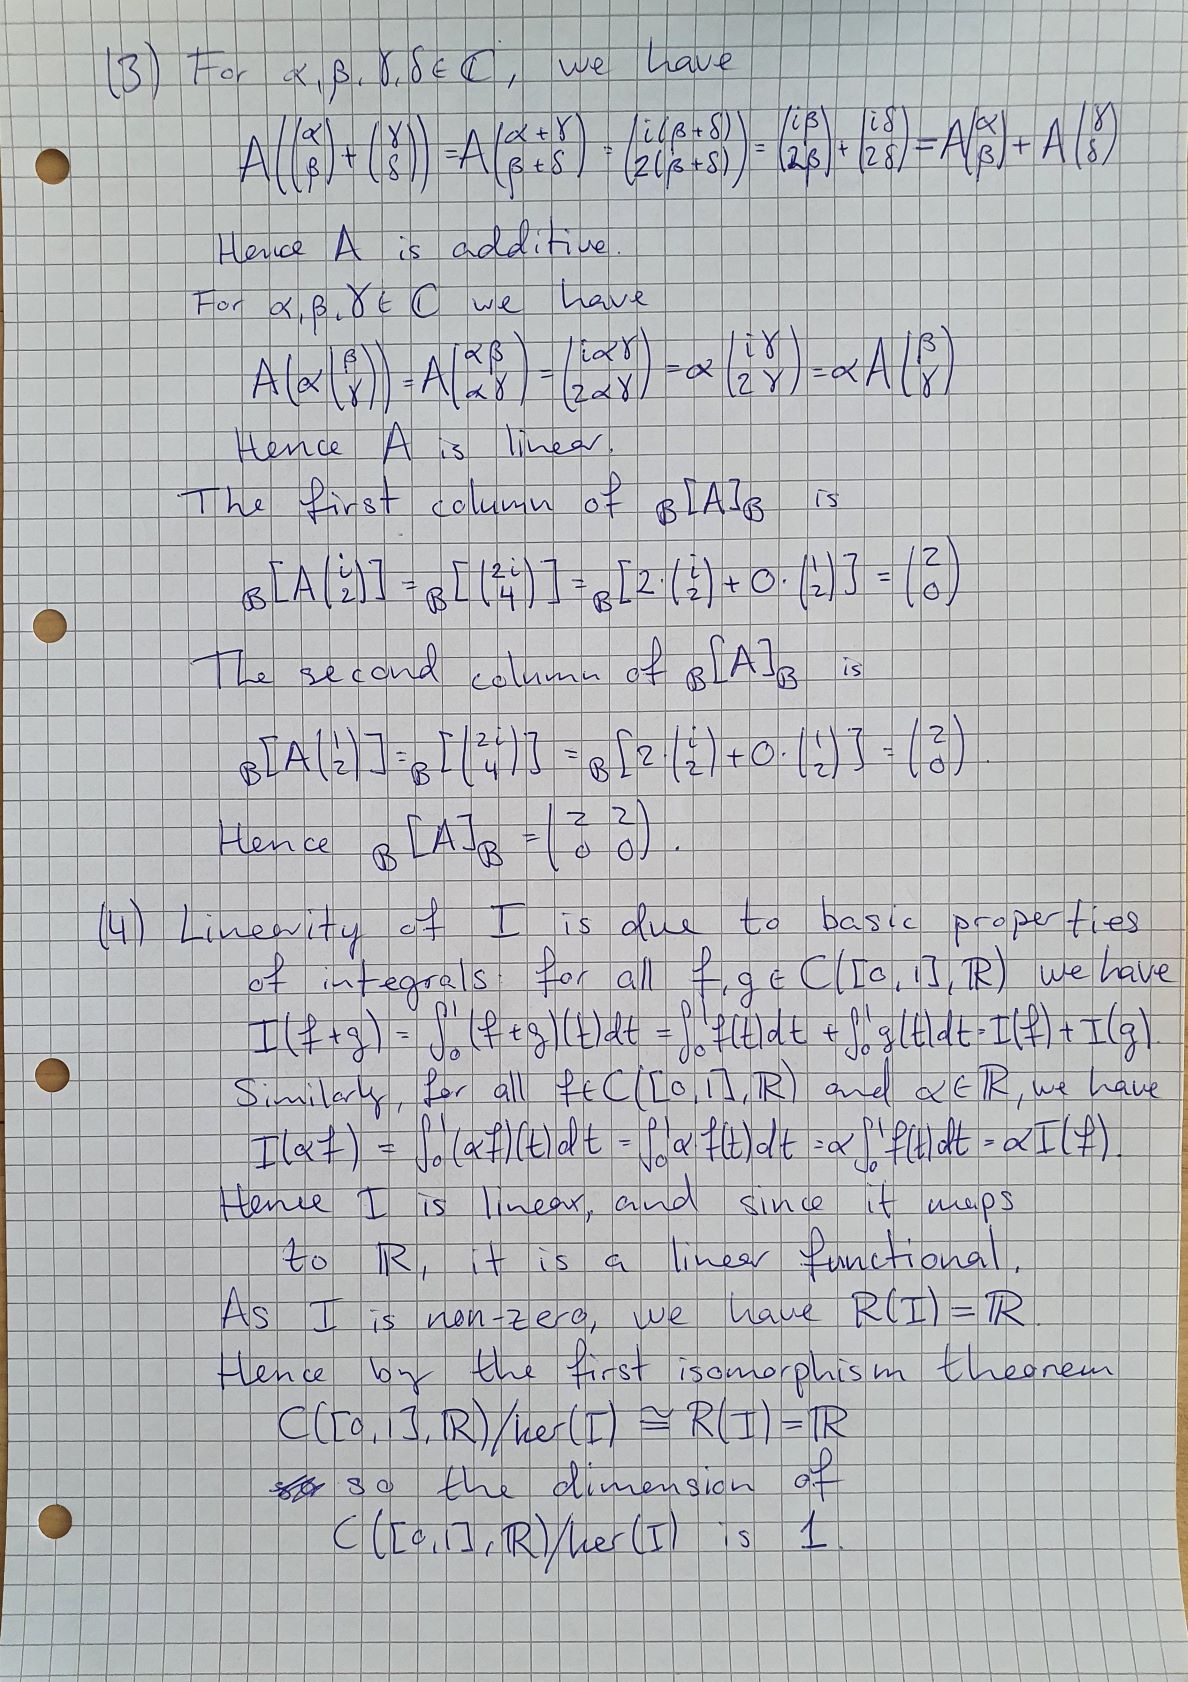 (3) For α, β, γ, δ ∈ ℂ, we have
A((α β) + (γ δ)) = A(α+γ β+δ) = (i(β+δ) 2(β+δ)) = (iβ 2β) + (iδ 2δ) = A(α β) + A(γ δ)
Hence A is additive.
For α, β, γ ∈ ℂ we have
A(α(β γ)) = A(αβ αγ) = (iαγ 2αγ) = α(iγ 2γ) = αA(β γ)
Hence A is linear.
The first column of B[A]B is
B[A(i 2)] = B[(2i 4)] = B[2·(i 2) + 0·(1 2)] = (2 0)
The second column of B[A]B is
B[A(1 2)] = B[(2i 4)] = B[2·(i 2) + 0·(1 2)] = (2 0).
Hence B[A]B = (2 2 0 0).
(4) Linearity of I is due to basic properties
of integrals: for all f, g ∈ C([0,1], ℝ) we have
I(f+g) = ∫₀¹(f+g)(t)dt = ∫₀¹f(t)dt + ∫₀¹g(t)dt = I(f) + I(g).
Similarly, for all f ∈ C([0,1], ℝ) and α ∈ ℝ, we have
I(αf) = ∫₀¹(αf)(t)dt = ∫₀¹α·f(t)dt = α∫₀¹f(t)dt = αI(f).
Hence I is linear, and since it maps
to ℝ, it is a linear functional.
As I is non-zero, we have R(I) = ℝ.
Hence by the first isomorphism theorem
C([0,1], ℝ)/ker(I) ≅ R(I) = ℝ
so the dimension of
C([0,1], ℝ)/ker(I) is 1.